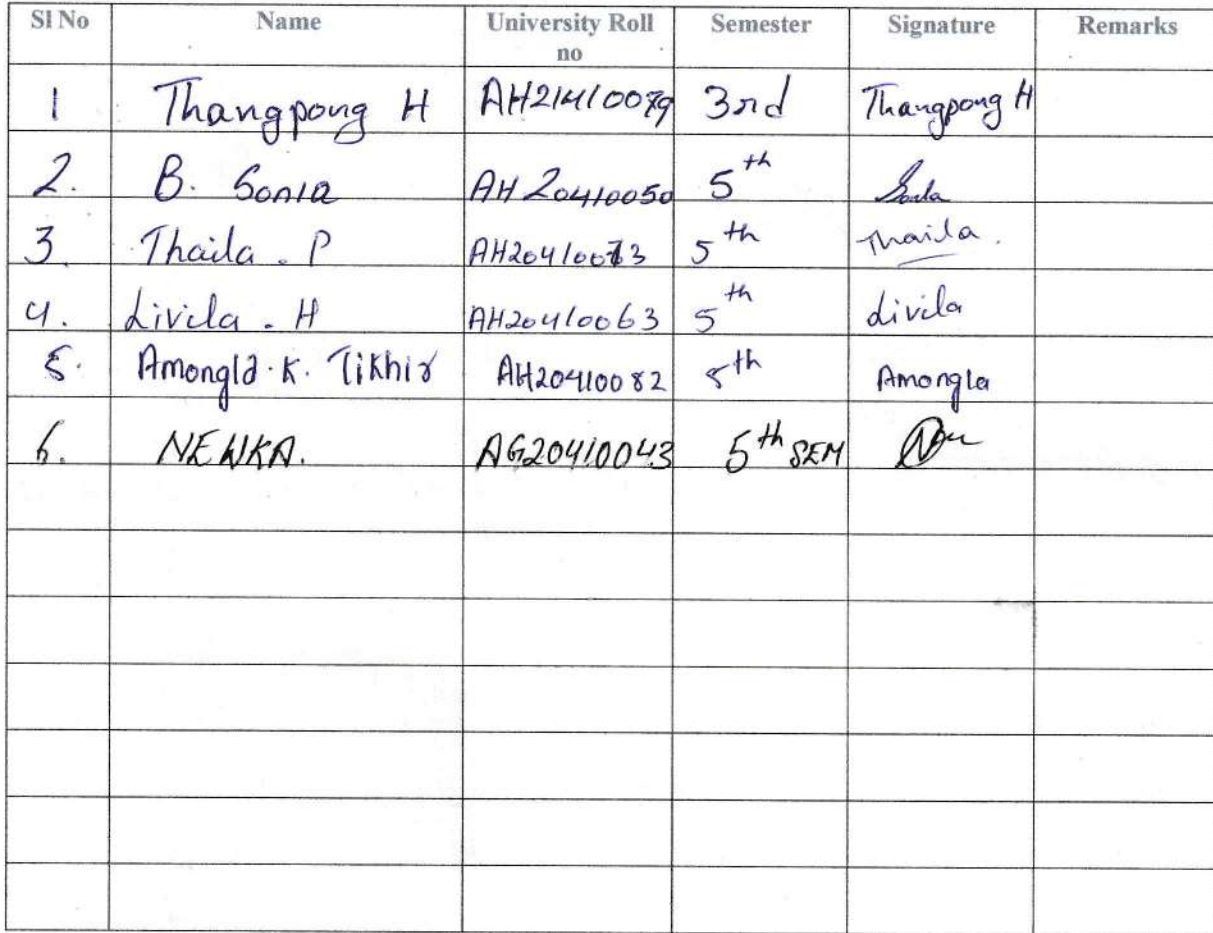 Sl No Name University Roll no Semester Signature Remarks
1 Thangpong H AH21410079 3rd Thangpong H
2. B. Sonia AH20410050 5th Sonia
3. Thaila . P AH20410073 5th Thaila.
4. Livila . H AH20410063 5th Livila
5. Amongla . K . Tikhir AH20410082 5th Amongla
6. NEWKA. AG20410043 5th SEM